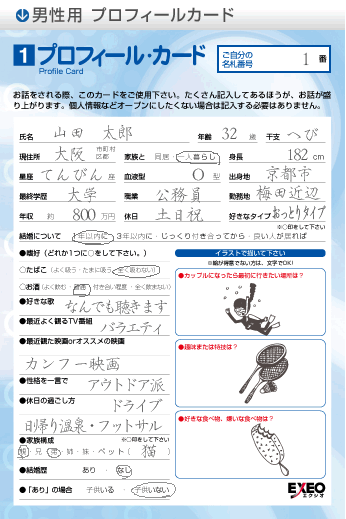 男性用 プロフィールカード
1 プロフィール・カード
Profile Card
ご自分の
名札番号
1 番
お話をされる際、このカードをご使用下さい。たくさん記入してあるほうが、お話が盛
り上がります。個人情報などオープンにしたくない場合は記入する必要はありません。
氏名 山田 太郎 年齢 32 歳 干支 へび
現住所 大阪 市町村区郡 家族と 同居・一人暮らし 身長 182 cm
星座 てんびん 座 血液型 O 型 出身地 京都市
最終学歴 大学 職業 公務員 勤務地 梅田近辺
年収 約 800 万円 休日 土日祝 好きなタイプ おっとりタイプ
※○印をして下さい
結婚について 1年以内に・3年以内に・じっくり付き合ってから・良い人が居れば
●嗜好(どれか1つに○をして下さい。)
○たばこ(よく吸う・たまに吸う・全く吸わない)
○お酒(よく飲む・普通・付き合い程度・全く飲まない)
●好きな歌
なんでも聴きます
●最近よく観るTV番組
バラエティ
●最近観た映画orオススメの映画
カンフー映画
●性格を一言で
アウトドア派
●休日の過ごし方
ドライブ
日帰り温泉・フットサル
●家族構成 ※○印をして下さい
親・兄・弟・姉・妹・ペット( 猫 )
●結婚歴 あり・なし
●「あり」の場合 子供いる・子供いない
イラストで描いて下さい
※絵が得意でない方は、文字でOK!
●カップルになったら最初に行きたい場所は?
●趣味または特技は?
●好きな食べ物、嫌いな食べ物は?
EXEO
エクシオ